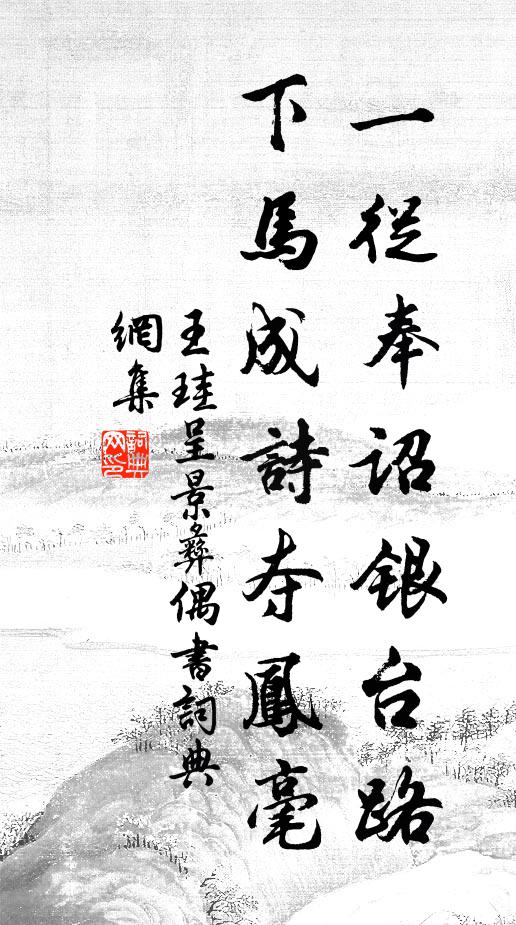 一從奉詔銀台路
下馬成詩夺鳳毫
王珪呈景彝偶書詞典
網集
詞典
网印